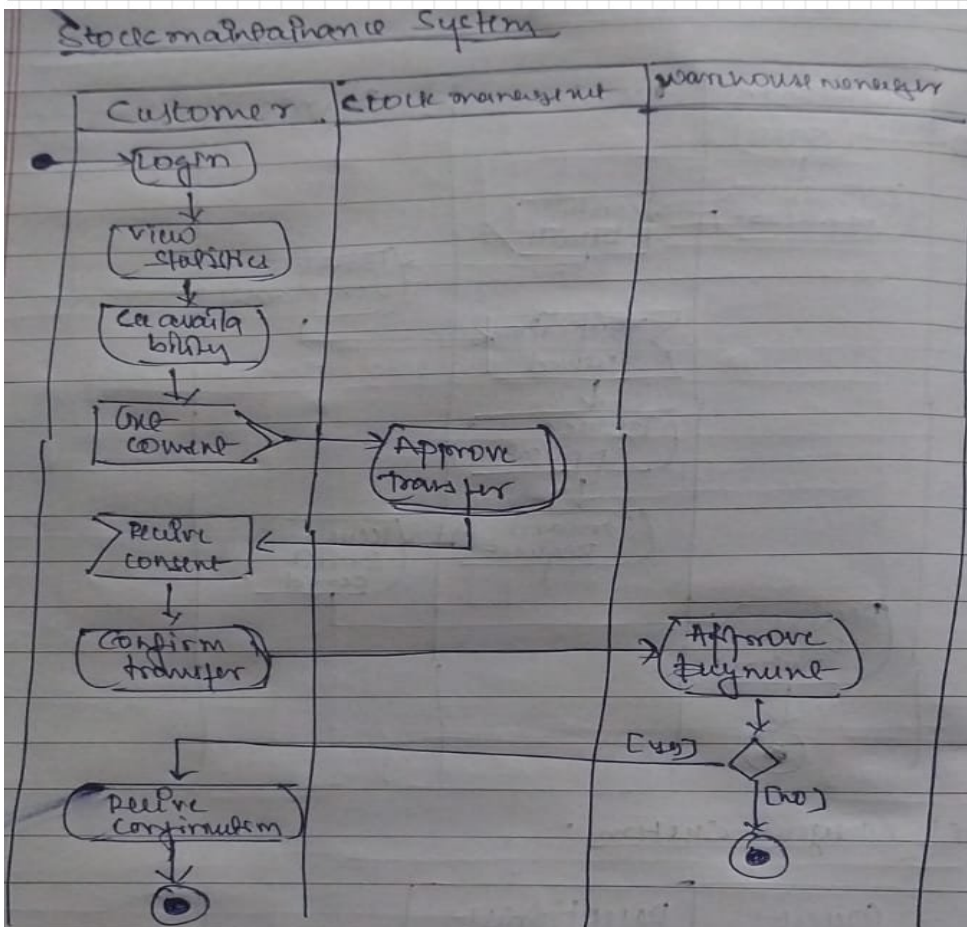 Stock maintainance System
Customer
stock management
warehouse manager
Login
View
statistics
availa
bility
consent
Approve
transfer
Receive
consent
Confirm
transfer
Approve
[yes]
[no]
Receive
confirmation